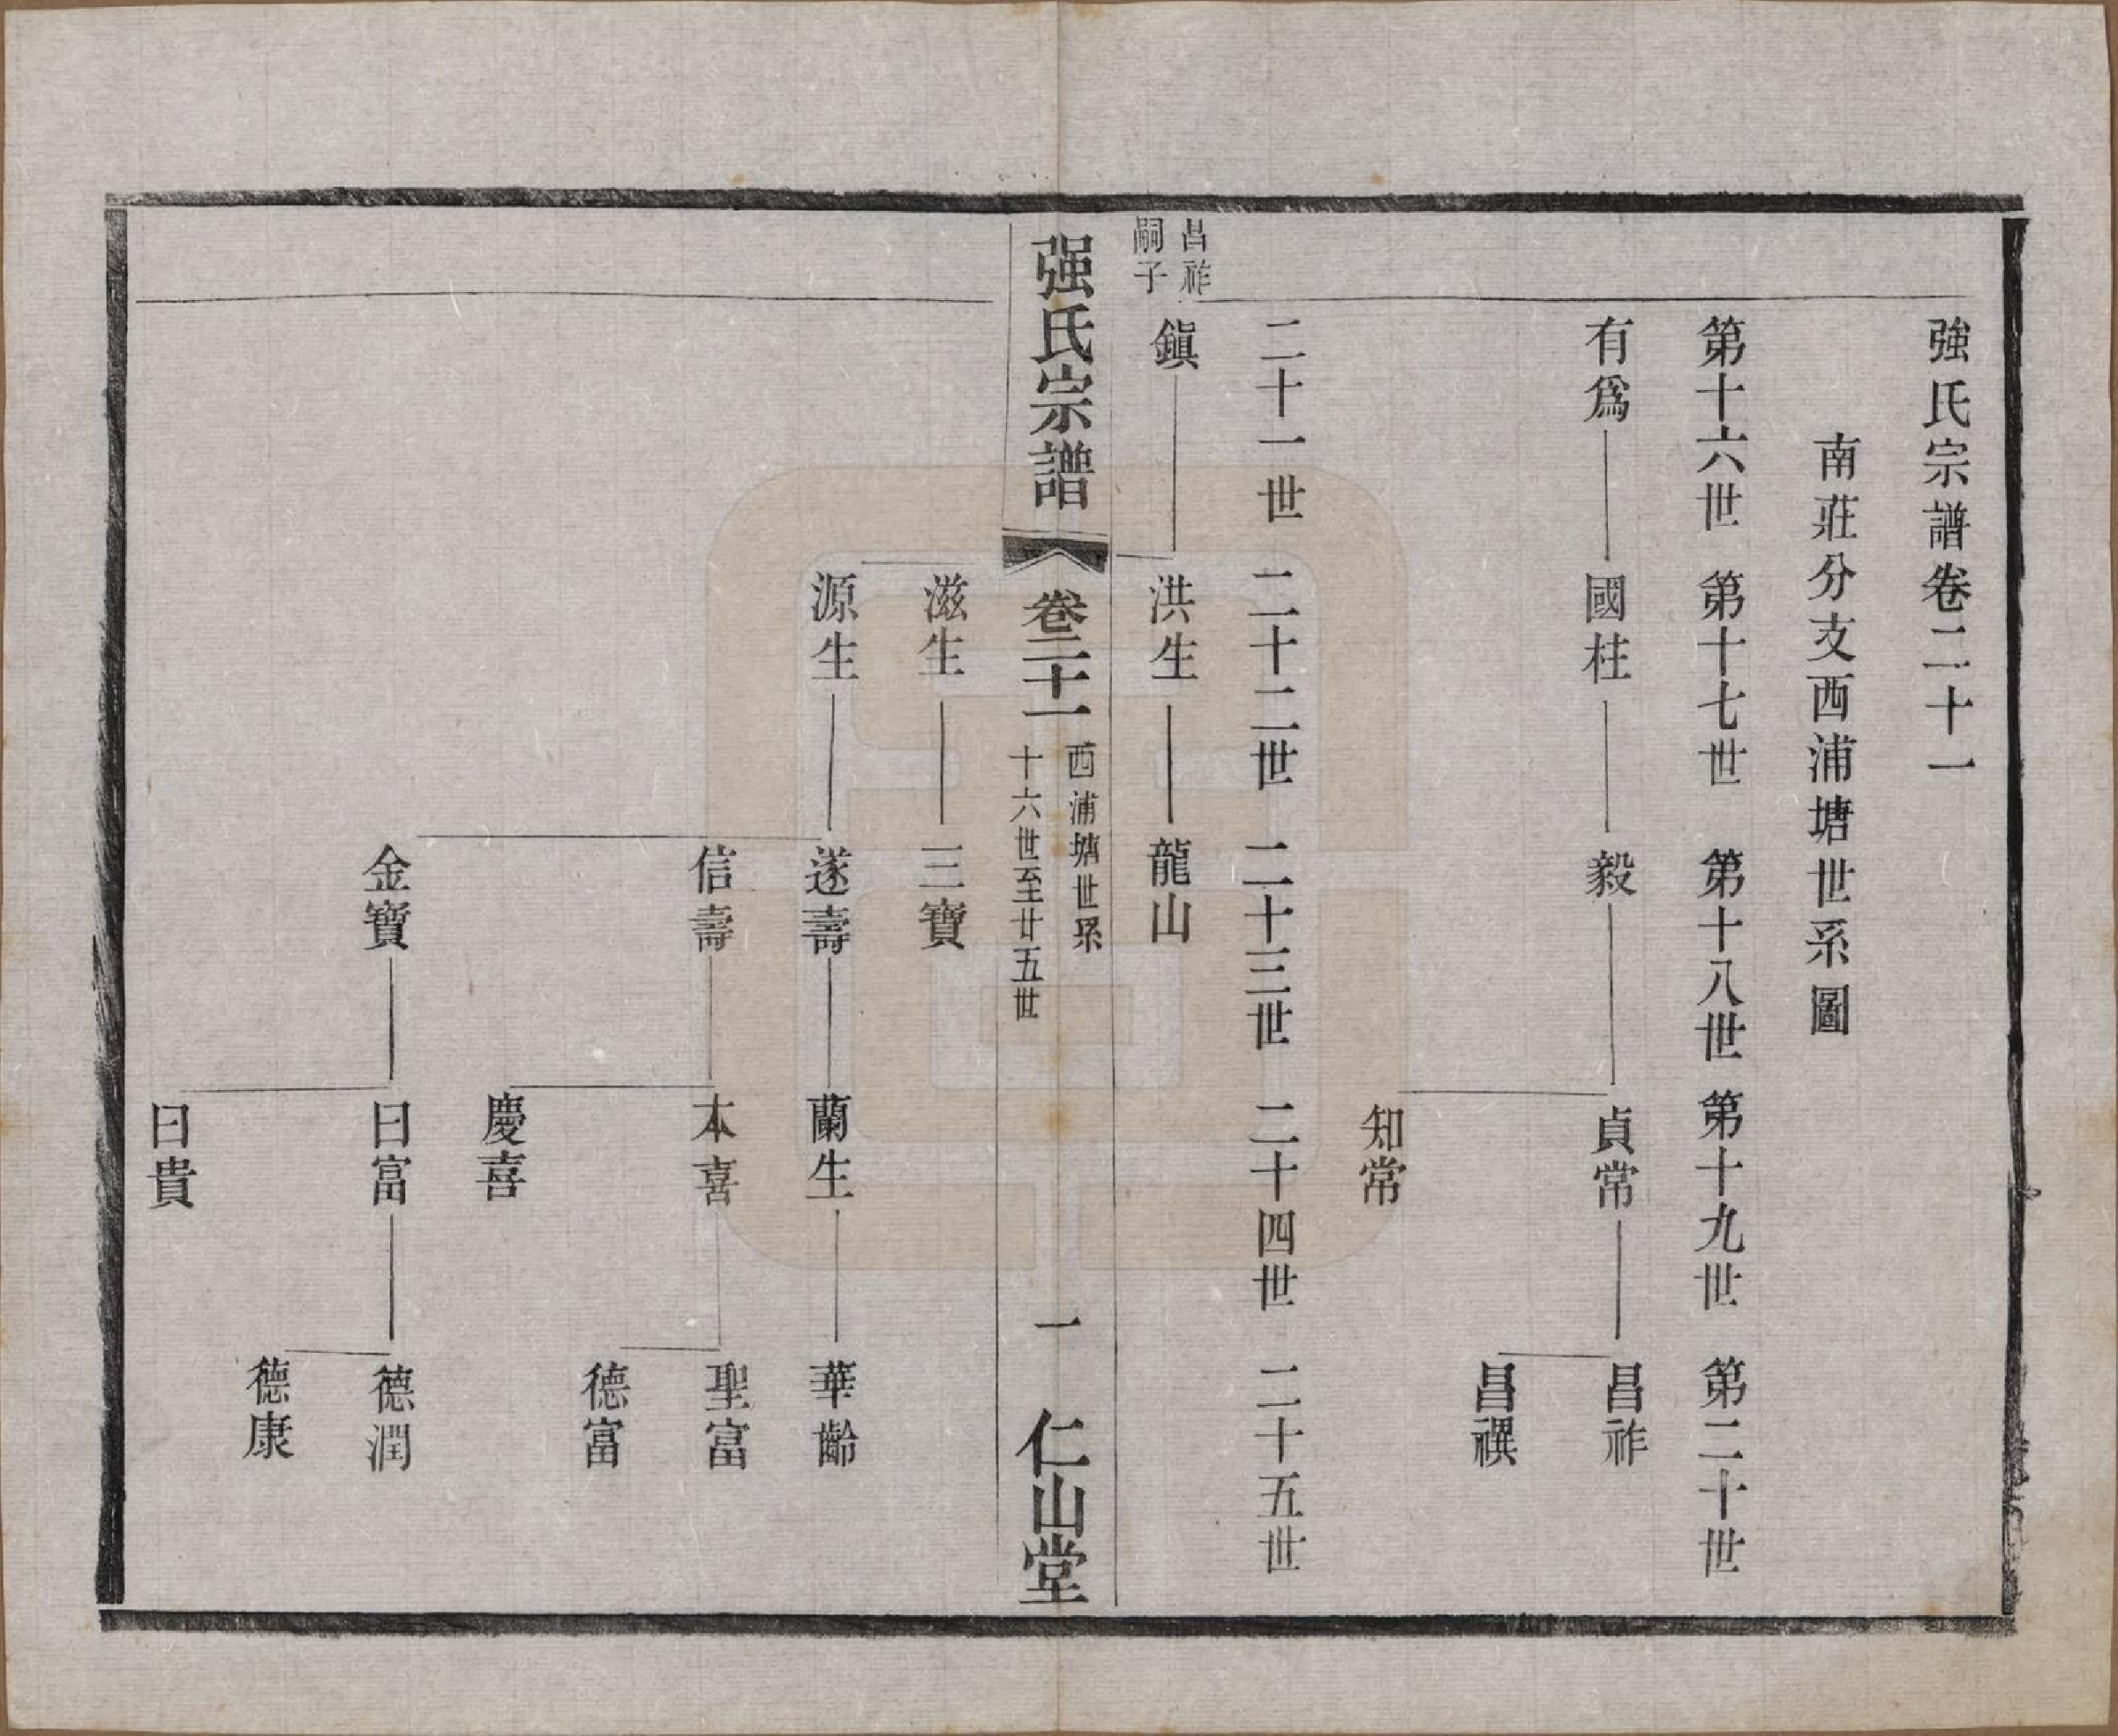 強氏宗譜卷二十一
南莊分支西浦塘世系圖
第十六世 第十七世 第十八世 第十九世 第二十世
有爲 國柱 毅 貞常 昌祚
昌禩
知常
二十一世 二十二世 二十三世 二十四世 二十五世
昌祚
嗣子
鎭 洪生 龍山
强氏宗譜 卷二十一 西浦塘世系
十六世至廿五世
一 仁山堂
滋生 三寶
源生 遂壽 蘭生 華齡
信壽 本喜 聖富
德富
慶喜
金寶 日富 德潤
德康
日貴